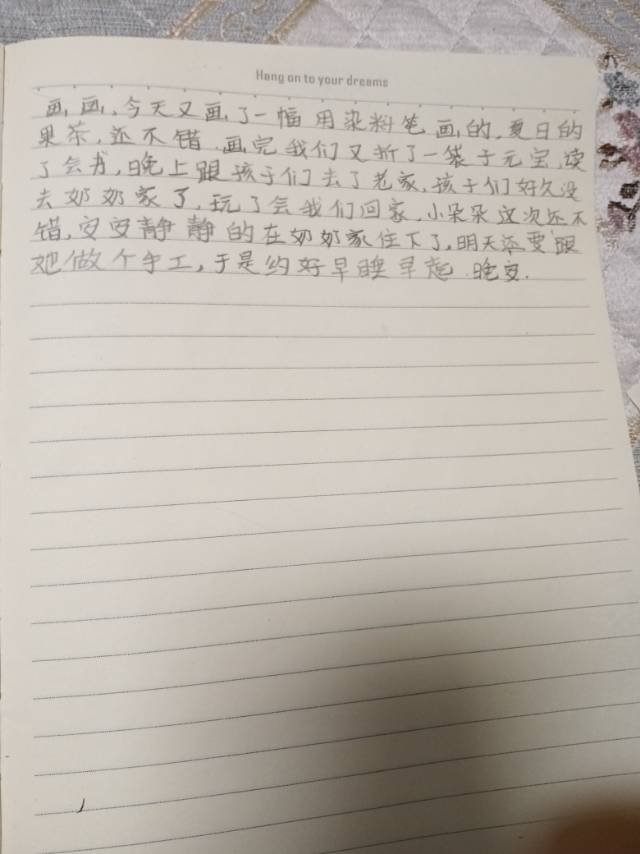 Hang on to your dreams
画画,今天又画了一幅用染料笔画的,夏日的
果茶,还不错.画完我们又折了一袋子元宝,读
了会书,晚上跟孩子们去了老家,孩子们好久没
去奶奶家了,玩了会我们回家,小朵朵这次还不
错,安安静静的在奶奶家住下了,明天还要跟
她做个手工,于是约好早睡早起.晚安.